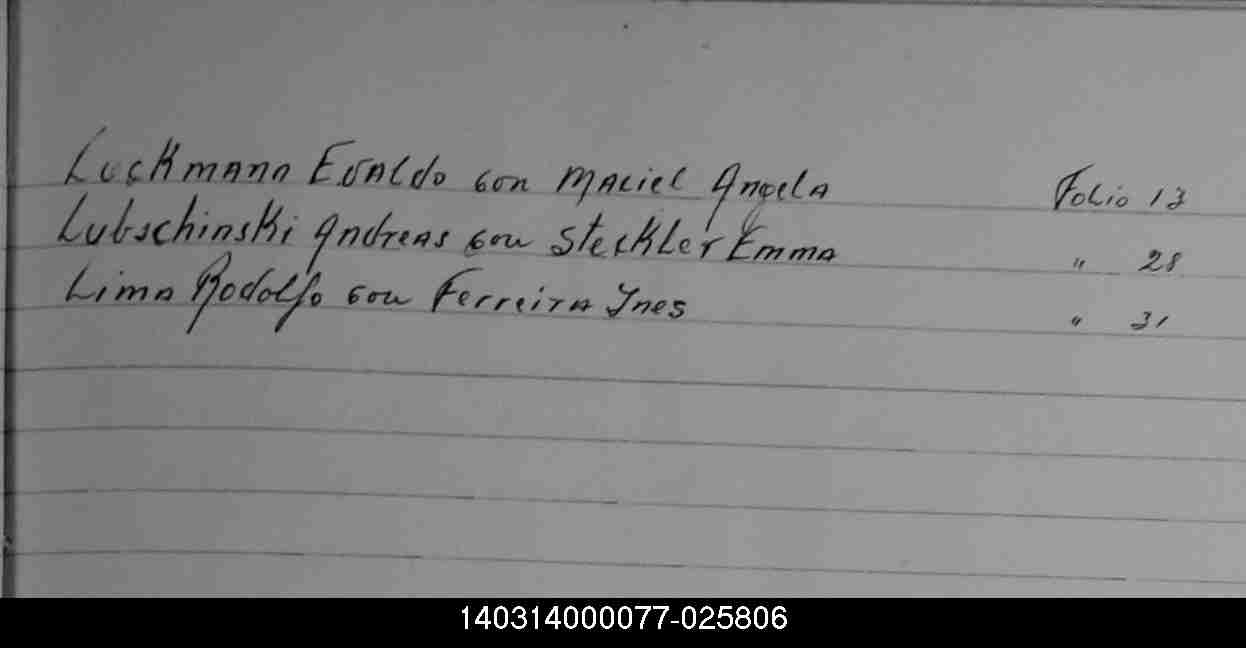 Luckmann Evaldo con Maciel Angela Folio 13
Lubschinski Andreas con Steckler Emma " 28
Lima Rodolfo con Ferreira Ynes " 31
140314000077-025806